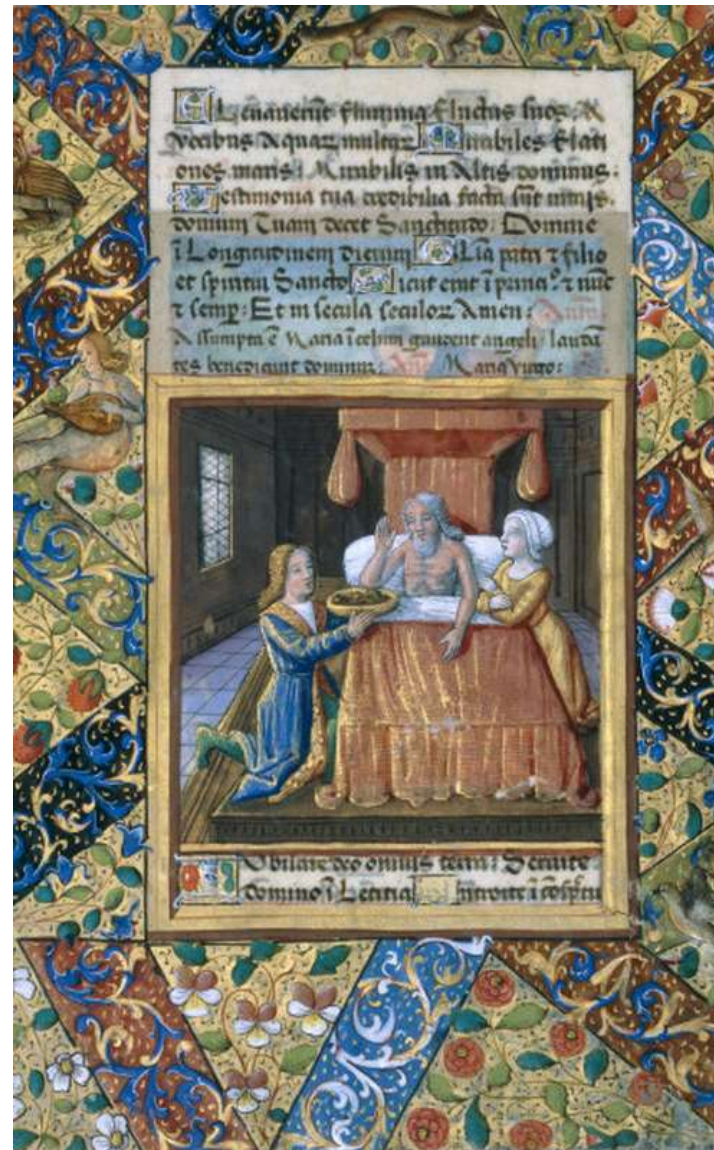 Elevaverūt flumina fluctus suos: A
vocibus Aquar̄ multar̄ Mirabiles Elati
ones maris: Mirabilis in Altis dominus.
Testimonia tua credibilia facta sūt nimis.
domum Tuam decet Sanctitudo: Domine
ī Longitudinem dierum Glīa patri ⁊ filio
et spiritui Sancto Sicut erat ī princi.º ⁊ nūc
⁊ semp̄: Et in secula seculoꝝ Amen: Antīa
Assumpta ē Maria ī celum gaudent angeli: laudā
tes benedicunt dominum: Maria virgo:
Iubilate deo omnis terra: Servite
domino ī Letitia Introite ī cōspctu